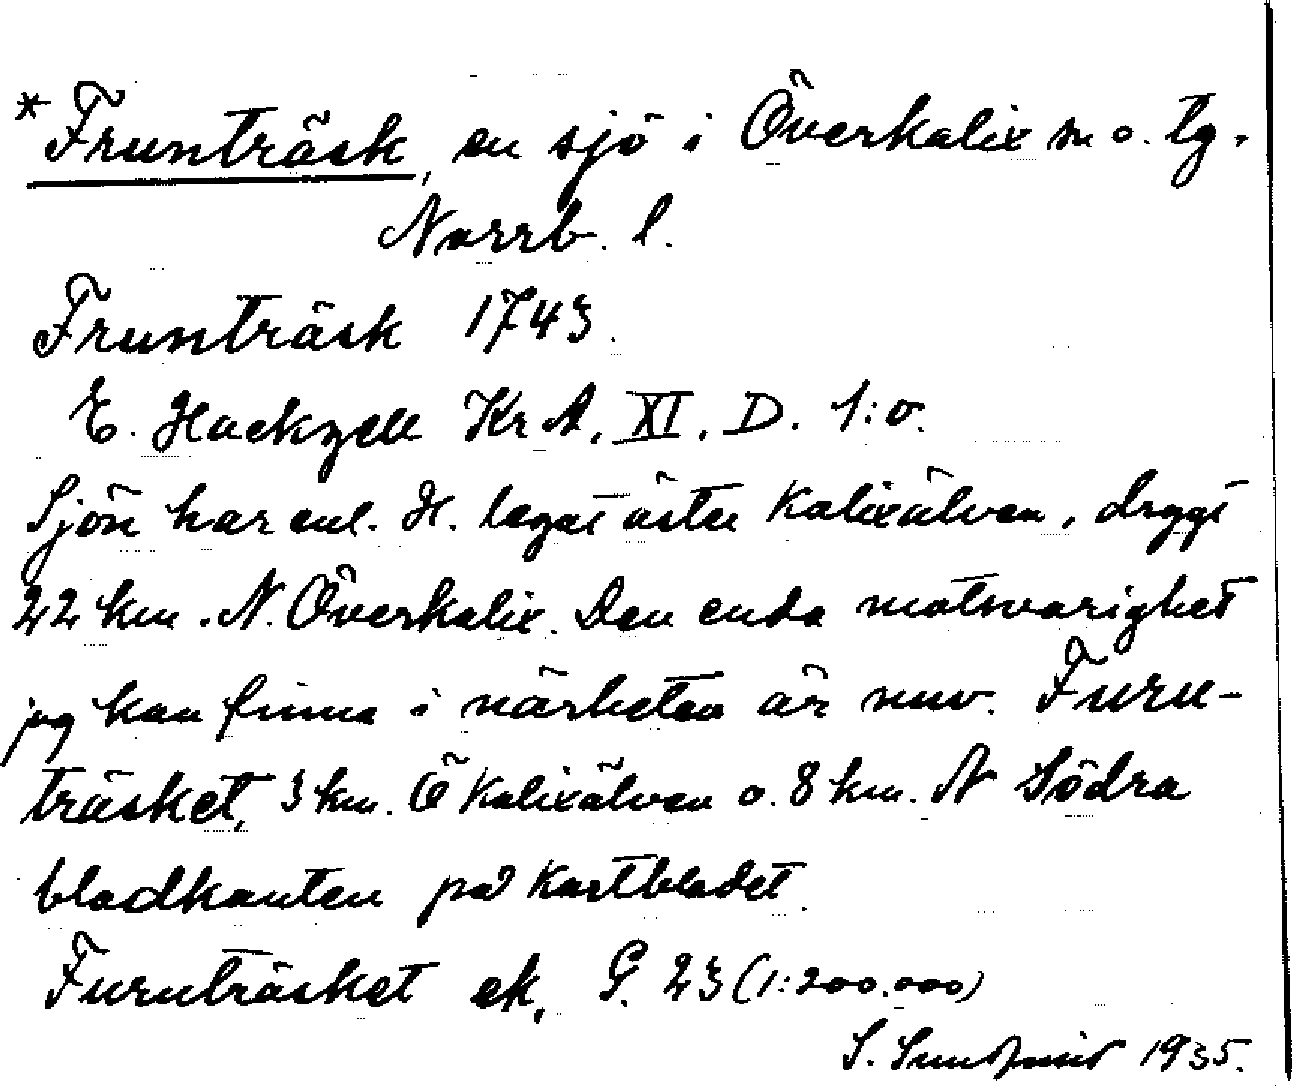 *Frunträsk, en sjö i Överkalix sn o. tg.
Norrb. l.
Frunträsk 1743.
E. Hackzell Kr A. XI. D. 1:o.
Sjön har enl. H. legat öster Kalixälven, drygt
22 km. N. Överkalix. Den enda motsvarighet
jag kan finna i närheten är nuv. Furu-
träsket, 3 km. Ö Kalixälven o. 8 km. N Södra
bladkanten på kartbladet.
Furuträsket ek. G. 23 (1:200.000)
S. 1935.